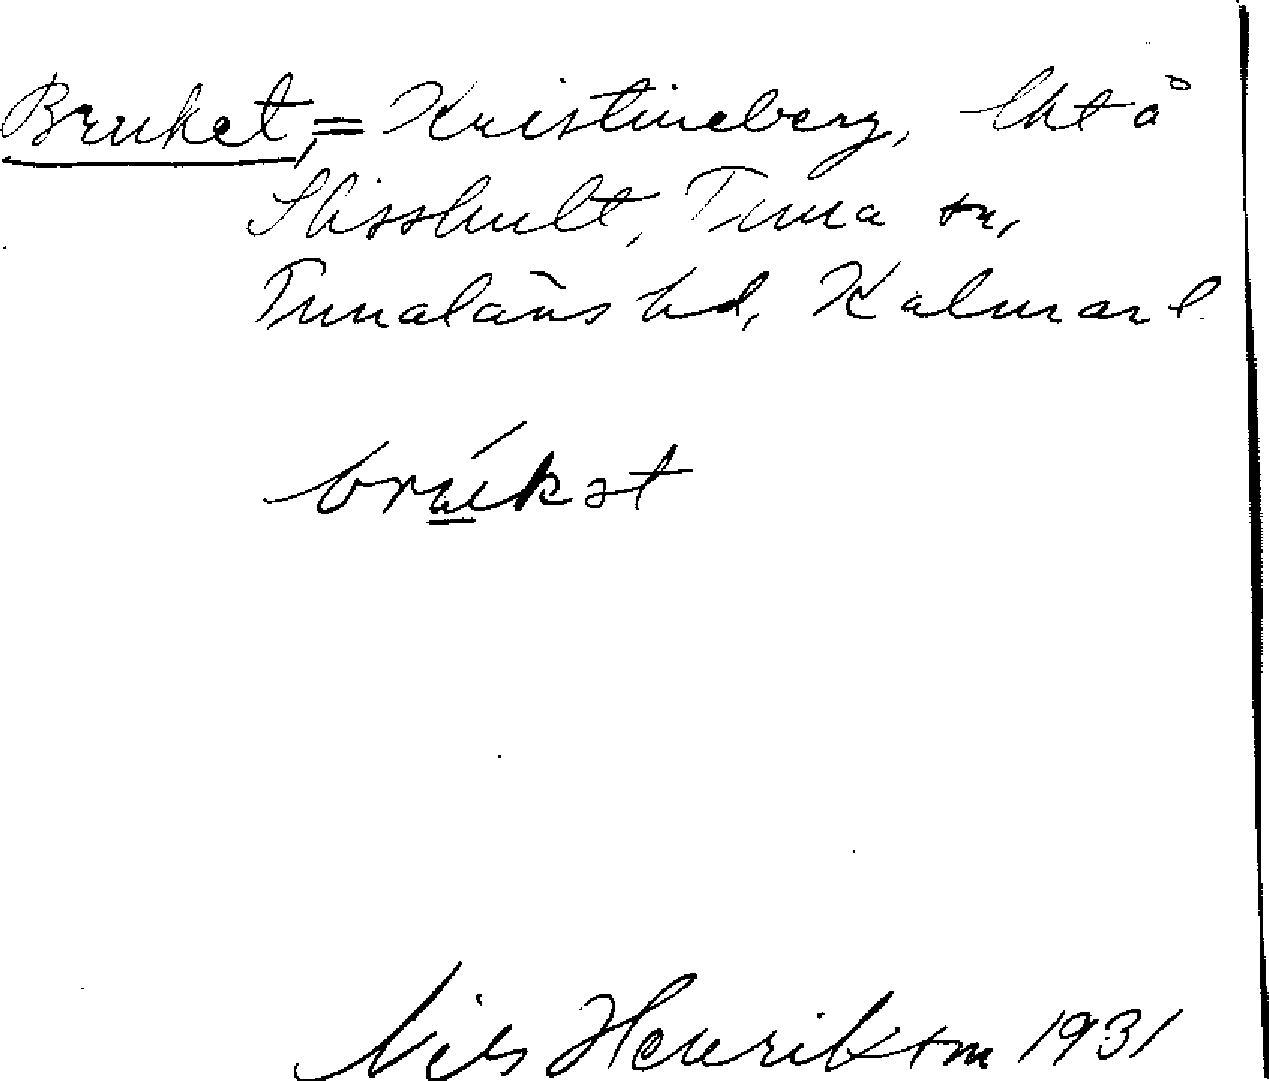 Bruket, = Kristineberg, lht å
Slisshult, Tuna sn,
Tunaläns hd, Kalmar l.
brúkət
Nils Henrikson 1931